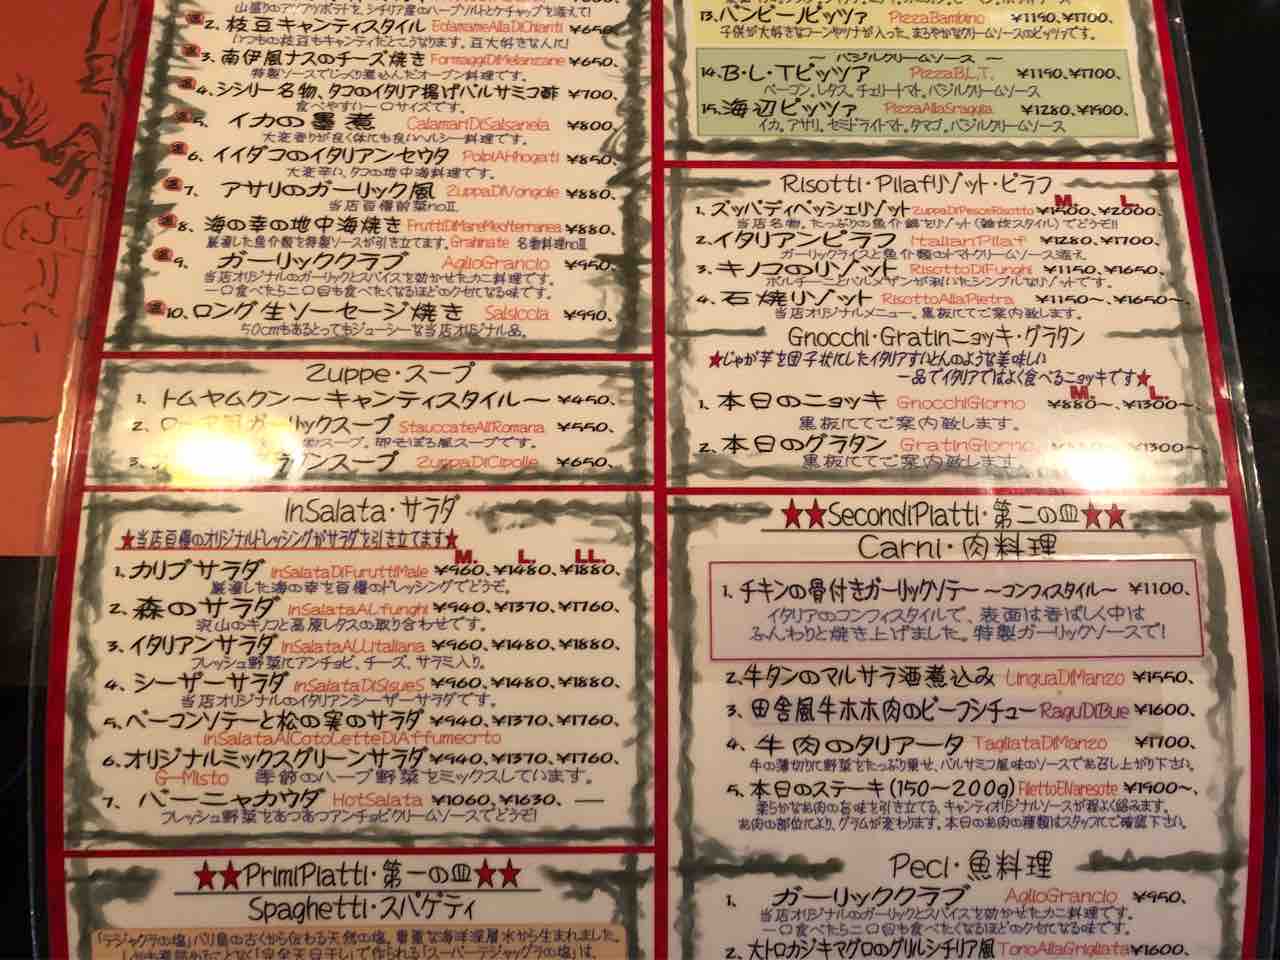 山盛りのアツアツポテト、シチリア産のハーブソルトとケチャップを添えて!
2. 枝豆キャンティスタイル EdamameAllaDiChianti ¥650、
いつもの枝豆もキャンティだとこうなります。豆大好きな人に!
3. 南伊風ナスのチーズ焼き FormaggiDiMelanzane ¥650、
特製ソースでじっくり煮込んだオーブン料理です。
4. シシリー名物、タコのイタリア揚げバルサミコ酢 ¥700、
食べやすい一口サイズです。
5. イカの墨煮 CalamariDiSalsanela ¥800、
大変香りが良く体にも良いヘルシー料理です。
6. イイダコのイタリアンセウタ PolpiAffrogati ¥850、
大変辛い、タコの地中海料理です。
7. アサリのガーリック風 ZuppaDiVongole ¥880、
当店自慢前菜noII
8. 海の幸の地中海焼き FruttiDiMareMediterranea ¥880、
厳選した魚介類を特製ソースが引き立てます。Grahinate 名番料理noII
9. ガーリッククラブ AglioGranclo ¥950、
当店オリジナルのガーリックとスパイスを効かせたカニ料理です。
一〇食べたら二〇目も食べたくなるほどのクセになる味です。
10. ロング生ソーセージ焼き Salsiccia ¥990、
50cmもあるとってもジューシーな当店オリジナル品。
Zuppe・スープ
1. トムヤムクン〜キャンティスタイル〜 ¥450、
2. ガーリックスープ StauccateAllRomana ¥550、
スープ。卵そぼろ風スープです。
3. ンスープ ZuppaDiCipolle ¥650、
InSalata・サラダ
★当店自慢のオリジナルドレッシングがサラダを引き立てます★
M. L. LL.
1. カリブサラダ InSalataDiFuruttiMale ¥960、¥1480、¥1880、
厳選した海の幸を自慢のドレッシングでどうぞ。
2. 森のサラダ InSalataALfunghi ¥940、¥1370、¥1760、
沢山のキノコと高原レタスの取り合わせです。
3. イタリアンサラダ InSalataALLItaliana ¥960、¥1480、¥1880、
フレッシュ野菜にアンチョビ、チーズ、サラミ入り。
4. シーザーサラダ InSalataDiSisueS ¥960、¥1480、¥1880、
当店オリジナルのイタリアンシーザーサラダです。
5. ベーコンソテーと松の実のサラダ ¥940、¥1370、¥1760、
InSalataAlCotoLetteDiAffumecrto
6. オリジナルミックスグリーンサラダ ¥940、¥1370、¥1760、
G-Misto 季節のハーブ野菜をミックスしています。
7. バーニャカウダ HotSalata ¥1060、¥1630、 ―
フレッシュ野菜をあつあつアンチョビクリームソースでどうぞ!
★★PrimiPiatti・第一の皿★★
Spaghetti・スパゲティ
「テジャクラの塩」バリ島の古くから伝わる天然の塩。豊富な海洋深層水から生まれました。
13. バンビーノピッツァ PizzaBambino ¥1190、¥1700、
子供が大好きなコーンやツナが入った、まろやかなクリームソースのピッツァです。
〜 バジルクリームソース 〜
14. B・L・Tピッツァ PizzaB.L.T. ¥1190、¥1700、
ベーコン。レタス。チェリートマト。バジルクリームソース
15. 海辺ピッツァ PizzaAllaSraggia ¥1280、¥1900、
イカ。アサリ。セミドライトマト。タマゴ。バジルクリームソース
Risotti・Pilafリゾット・ピラフ
M. L.
1. ズッパディペッシェリゾット ZuppaDiPesceRisotto ¥1500、¥2000、
当店名物。たっぷりの魚介鍋をリゾット(雑炊スタイル)でどうぞ!!
2. イタリアンピラフ ItalianPilaf ¥1280、¥1700、
ガーリックライスと魚介類のトマトクリームソース添え
3. キノコのリゾット RisottoDiFunghi ¥1150、¥1650、
ポルチーニとパルメザンが利いたシンプルなリゾットです。
4. 石焼リゾット RisottoAllaPietra ¥1150〜、¥1650〜、
当店オリジナルメニュー。黒板にてご案内致します。
Gnocchi・Gratinニョッキ・グラタン
★じゃが芋を団子状にしたイタリアすいとんのような美味しい
一品でイタリアではよく食べるニョッキです★
M. L.
1. 本日のニョッキ GnocchiGiorno ¥880〜、¥1300〜、
黒板にてご案内致します。
2. 本日のグラタン GratinGiorno ¥1300〜、
黒板にてご案内致します
★★SecondiPiatti・第二の皿★★
Carni・肉料理
1. チキンの骨付きガーリックソテー 〜コンフィスタイル〜 ¥1100、
イタリアのコンフィスタイルで、表面は香ばしく中は
ふんわりと焼き上げました。特製ガーリックソースで!
2. 牛タンのマルサラ酒煮込み LinguaDiManzo ¥1550、
3. 田舎風牛ホホ肉のビーフシチュー RaguDiBue ¥1600、
4. 牛肉のタリアータ TagliataDiManzo ¥1700、
牛の薄切りに野菜をたっぷり乗せ、バルサミコ風味のソースでお召し上がり下さい。
5. 本日のステーキ(150〜200g) FilettoENaresote ¥1900〜、
柔らかなお肉の旨味を引き立てる、キャンティオリジナルソースが程よく絡みます。
お肉の部位により、グラムが変わります。本日のお肉の種類はスタッフにてご確認下さい。
Peci・魚料理
1. ガーリッククラブ AglioGranclo ¥950、
当店オリジナルのガーリックとスパイスを効かせたカニ料理です。
一〇食べたら二〇目も食べたくなるほどのクセになる味です。
2. 大トロカジキマグロのグリルシチリア風 TonoAllaGrigliata ¥1600、